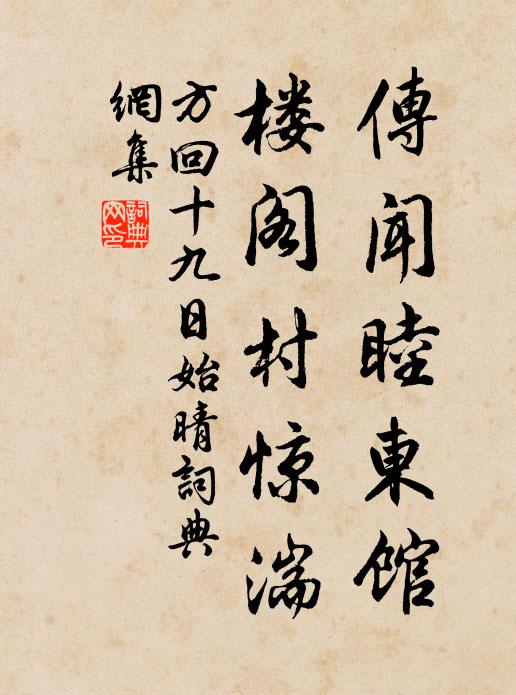 傳聞睦東館
楼阁村惊湍
方回十九日始晴詞典
網集
詞典
网印